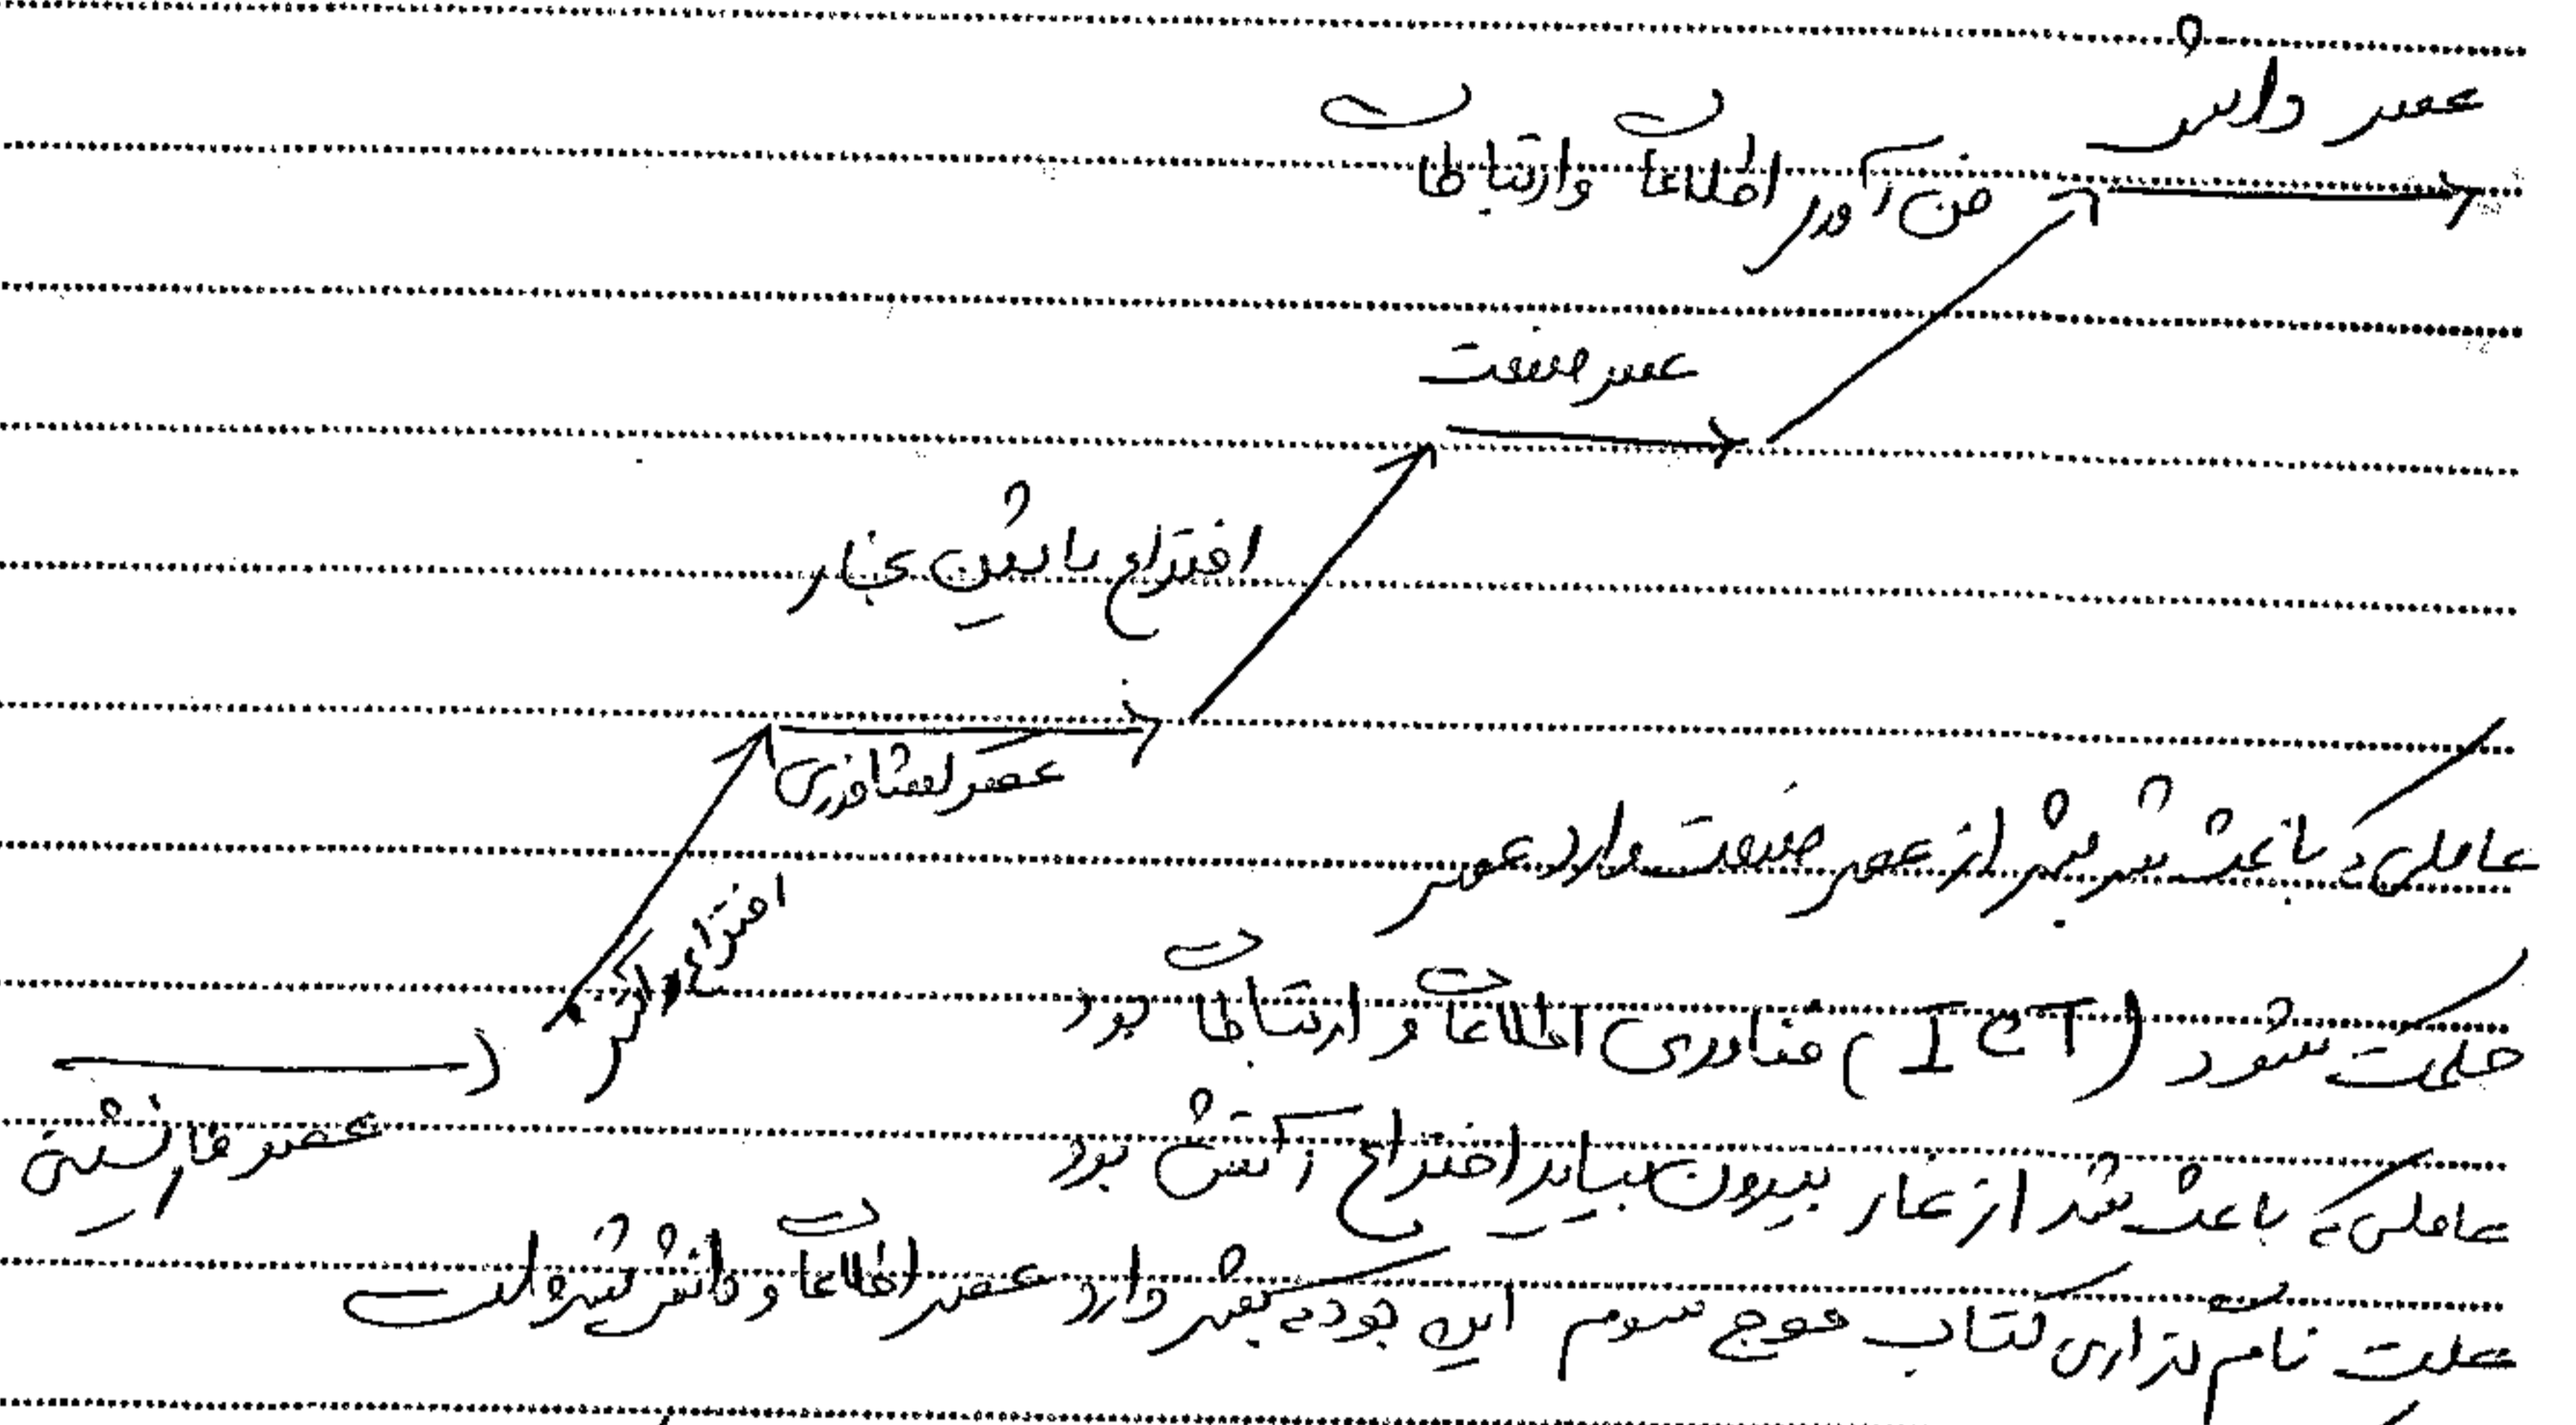 عصر دانش
فن آوری اطلاعات و ارتباطات
عصر صنعت
اختراع ماشین بخار
عصر کشاورزی
اختراع
عصر غارنشینی
عاملی که باعث شد بشر از عصر صنعت وارد عصر
حکمت شود (ICT) فناوری اطلاعات و ارتباطات بود
عاملی که باعث شد از غار بیرون بیاید اختراع آتش بود
علت نام گذاری کتاب موج سوم این بود که بشر وارد عصر اطلاعات و دانش شده است